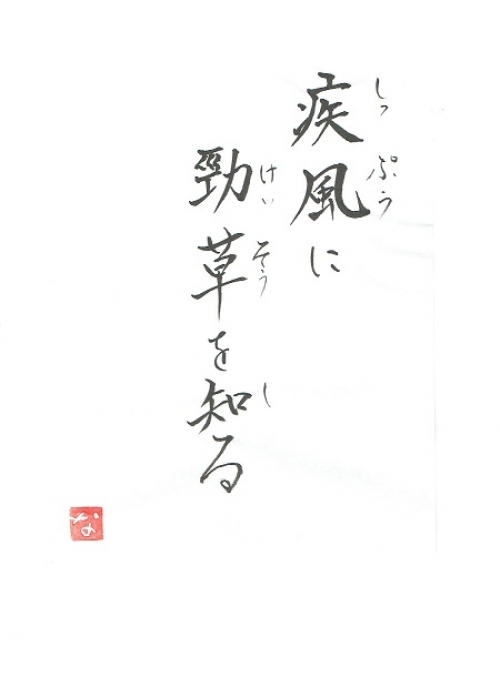 疾風に
しっぷう
勁草を知る
けいそう
し
な